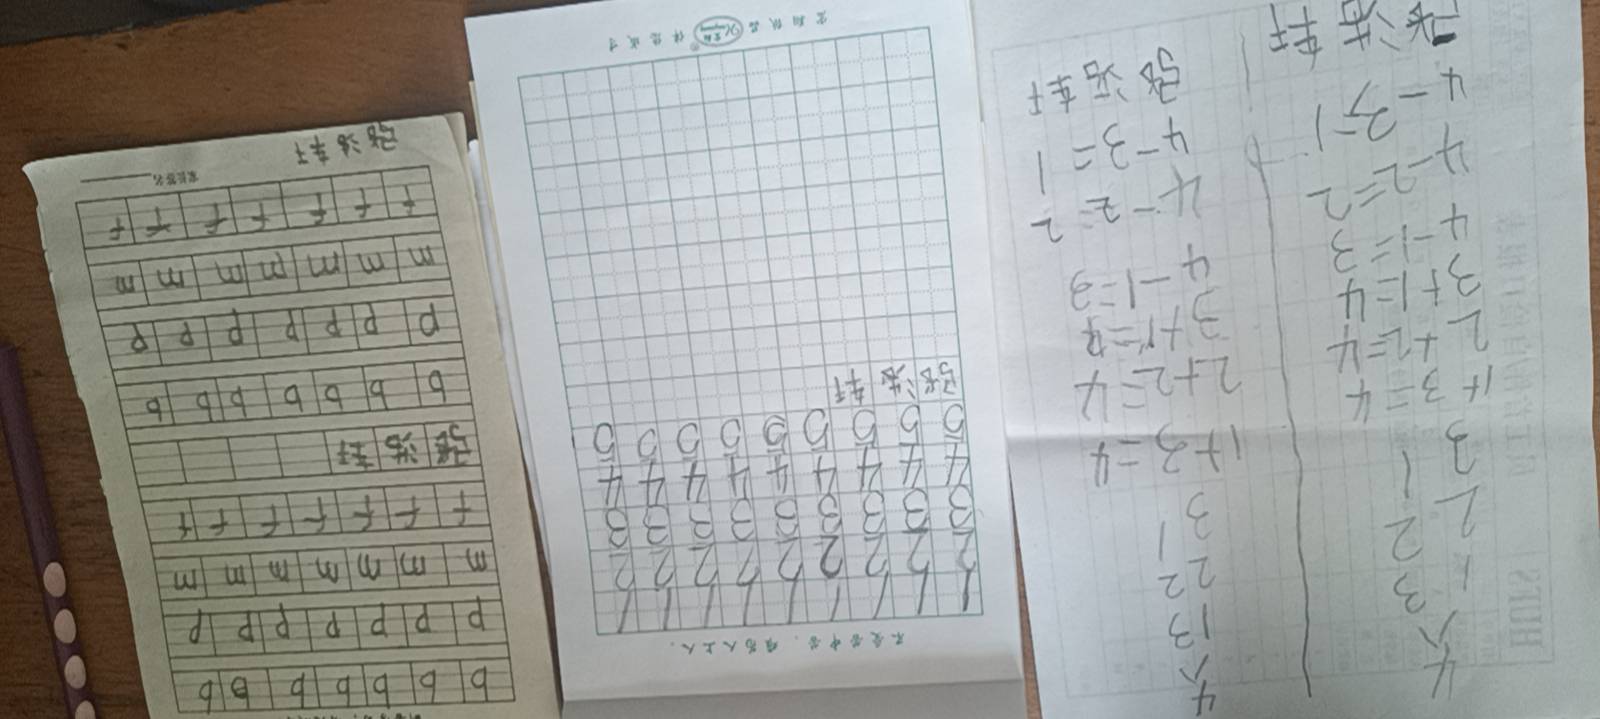 4
1 3
2 2
3 1
1+3=4
2+2=4
3+1=4
4-1=3
4-2=2
4-3=1
张浩轩
4
1 3
2 2
3 1
1+3=4
2+2=4
3+1=4
4-1=3
4-2=2
4-3=1
张浩轩
不受苦中苦,难为人上人.
1 1 1 1 1 1 1 1 1
2 2 2 2 2 2 2 2 2
3 3 3 3 3 3 3 3 3
4 4 4 4 4 4 4 4 4
5 5 5 5 5 5 5 5 5
张浩轩
b b b b b b b
p p p p p p p
m m m m m m m
f f f f f f f
张浩轩
b b b b b b b
p p p p p p p
m m m m m m m
f f f f f f f
家长签名
张浩轩